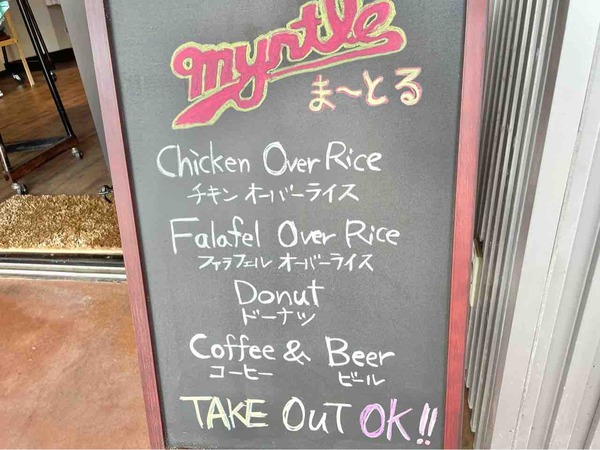 myrtle
ま〜とる
Chicken Over Rice
チキン オーバーライス
Falafel Over Rice
ファラフェル オーバーライス
Donut
ドーナツ
Coffee & Beer
コーヒー ビール
TAKE OUT OK!!